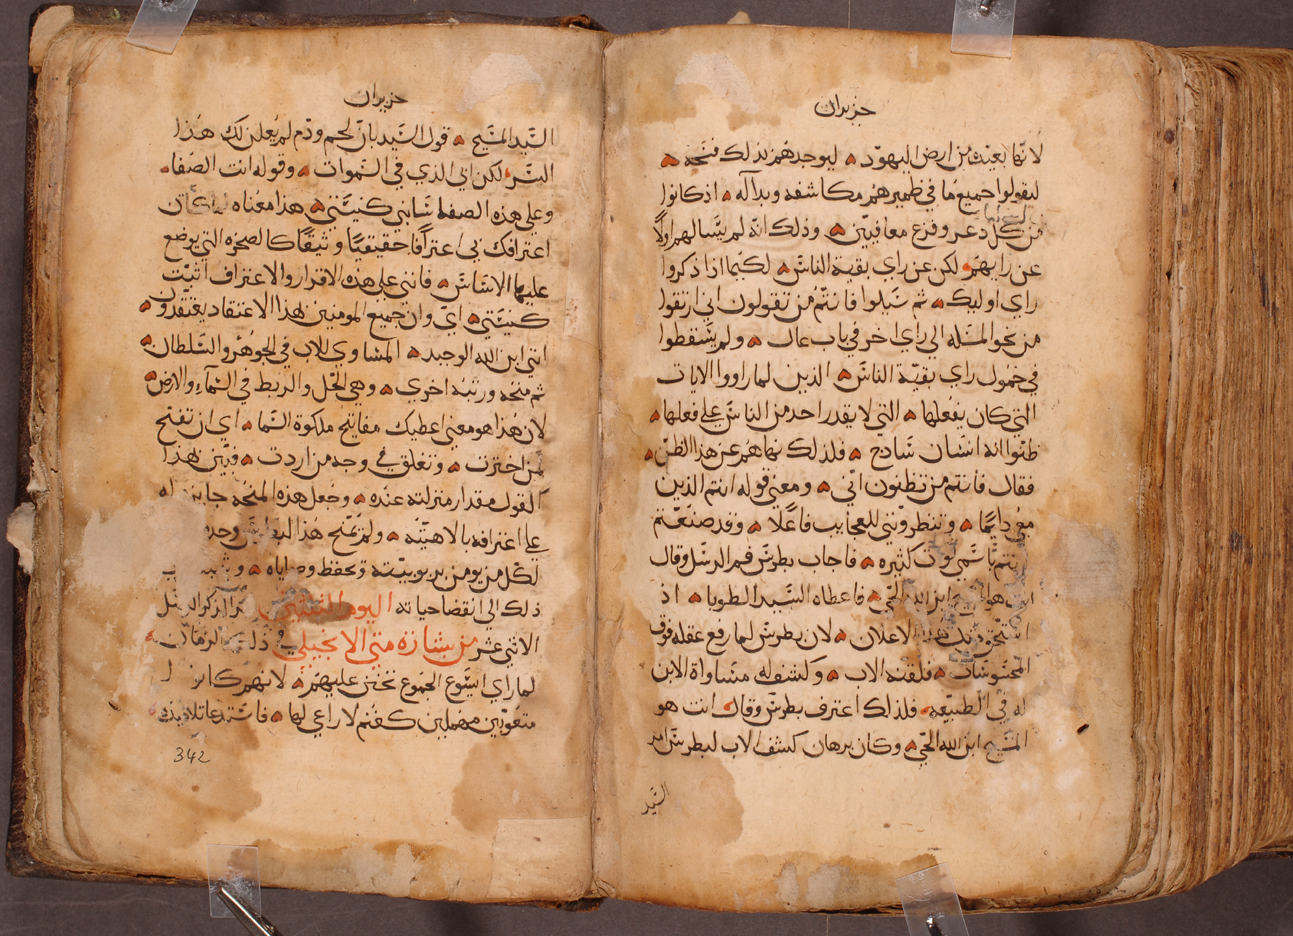 حزيران
لانها بعيده من ارض اليهود ليوجدهم بذلك فسحه
ليقولوا جميع ما في ضميرهم مكاشفه وبداله اذ كانوا
من كل ذعر وفزع معافيين وذلك انه لم يسالهم اولاً
عن رايهم لكن عن راي بقية الناس لكيما اذا ذكروا
راي اوليك ثم سيلوا فانتم من تقولون اني ارتقوا
من نحو المسله الى راي اخر في باب عال ولم يسقطوا
في خمول راي بقية الناس الذين لما راووا الايات
التي كان يفعلها التي لا يقدر احد من الناس على فعلها
ظنوا انه انسان سادج فلذلك نهاهم عن هذا الظن
فقال فانتم من تظنون اني ومعنى قوله انتم الذين
معي دايمًا وتنظرونني للعجايب فاعلا وقد صنعتم
انتم باسمي قوات كثيره فاجاب بطرس فم الرسل وقال
انت هو المسيح ابن الله الحي فاعطاه السيد الطوبا اذ
استحق ذلك الاعلان لان بطرس لما رفع عقله فوق
المحسوسات فلقنه الاب وكشف له مساواة الابن
له في الطبيعه فلذلك اعترف بطرس وقال انت هو
المسيح ابن الله الحي وكان برهان كشف الاب لبطرس امر
السيد
حزيران
السيد المسيح قول السيد بان لحم ودم لم يعلن لك هذا
السر لكن ابي الذي في السموات وقوله انت الصفا
وعلى هذه الصفا سابني كنيستي هذا معناه كان
اعترافك بي اعترافا حقيقيا وثيقا كالصخره التي يوضع
عليها الاساس فانني على هذه الاقرار والاعتراف اثبت
كنيستي اي وان جميع المومنين هذا الاعتقاد يعتقدون
انني ابن الله الوحيد المساوي للاب في الجوهر والسلطان
ثم منحه ورتبه اخرى وهي الحل والربط في السماء والارض
لان هذا هو معنى اعطيك مفاتيح ملكوة السما اي ان تفتح
لمن اخترت وتغلق في وجه من اردت فبين هذا
القول مقدار منزلته عنده وجعل هذه المنحه جايزه له
على اعترافه بالاهيته ولم يمنح هذا بطرس وحده
لكل من يومن بربوبيته وبحفظ وصاياه
ذلك الى انقضا حياته اليوم الثلثين تذكار الرسل
الاثني عشر من بشارة متى الانجيلي في ذلك الزمان
لما راى ايسوع الجموع تحنن عليهم لانهم كانوا
متعوبين مهملين كغنم لا راعي لها فاستدعا تلاميذه
342